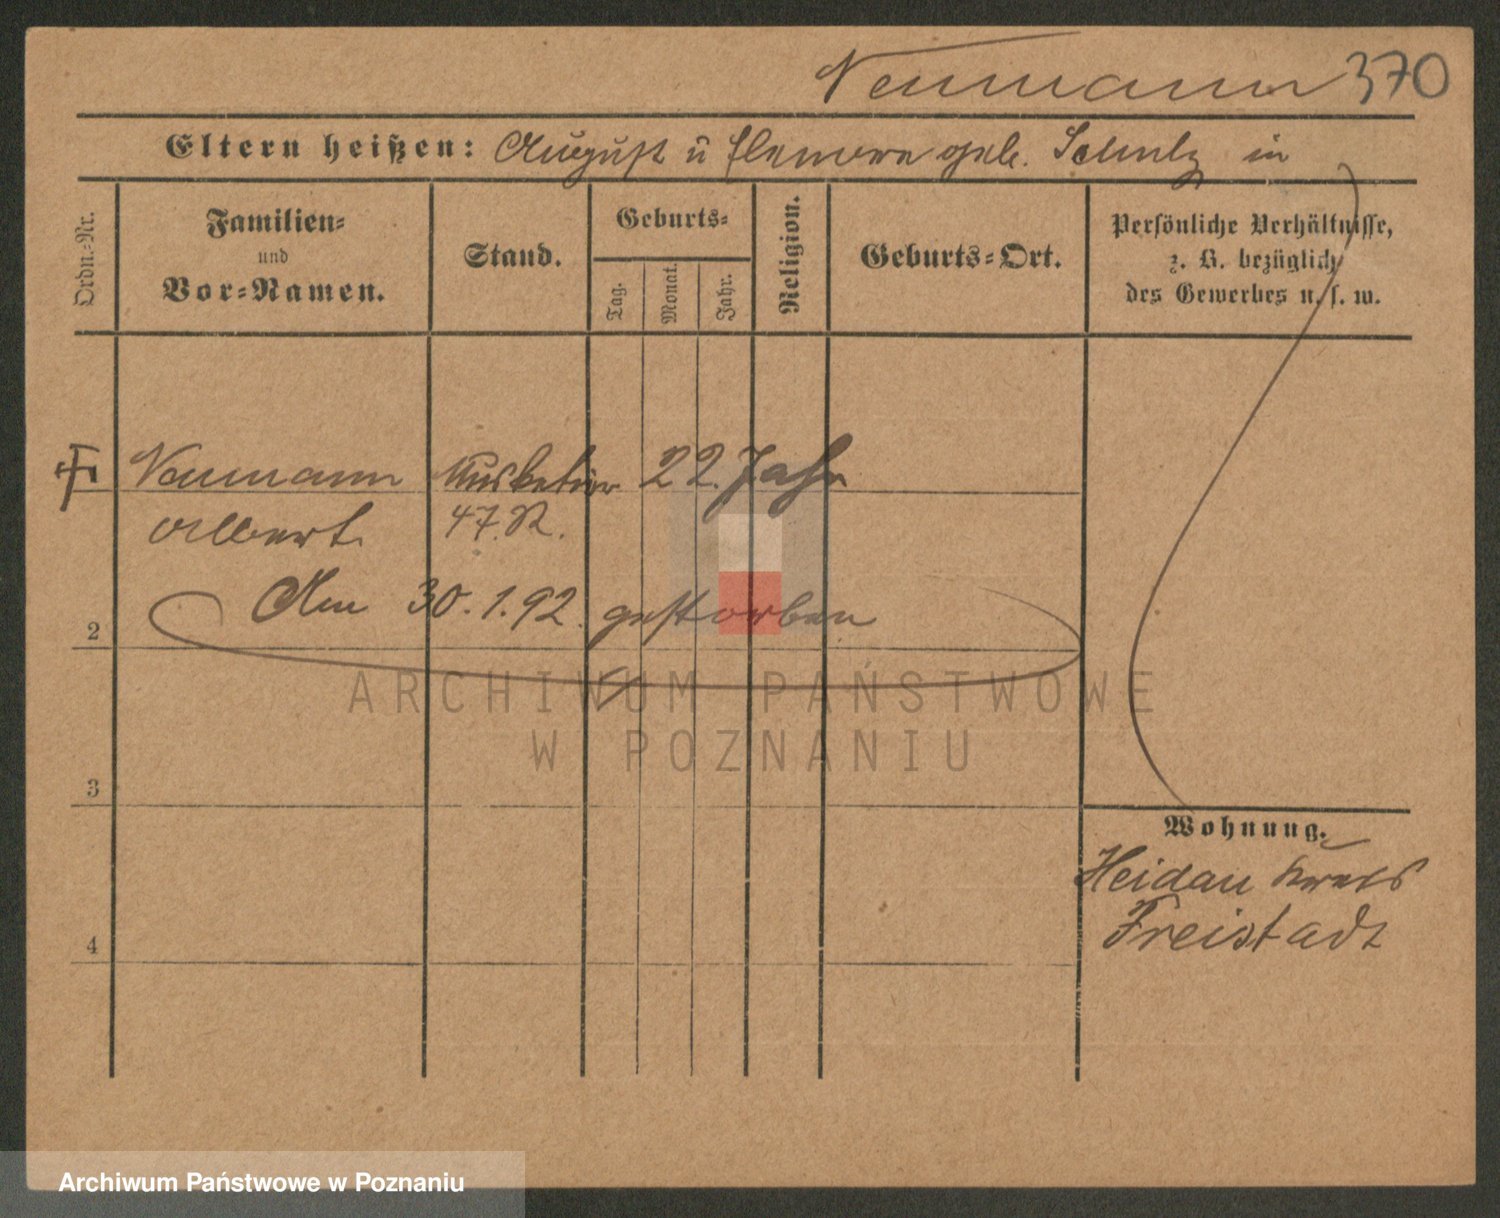 Neumann 370
Eltern heißen: August u Elenore geb. Schulz in
Ordn.-Nr.
Familien-
und
Vor-Namen.
Stand.
Geburts-
Tag.
Monat.
Jahr.
Religion.
Geburts-Ort.
Persönliche Verhältnisse,
z. B. bezüglich
des Gewerbes u. s. w.
Neumann Musketier 22. Jahr
Albert 47. R.
Am 30.1.92. gestorben
2
3
4
Wohnung.
Heidau Kreis
Freistadt
ARCHIWUM PAŃSTWOWE
W POZNANIU
Archiwum Państwowe w Poznaniu